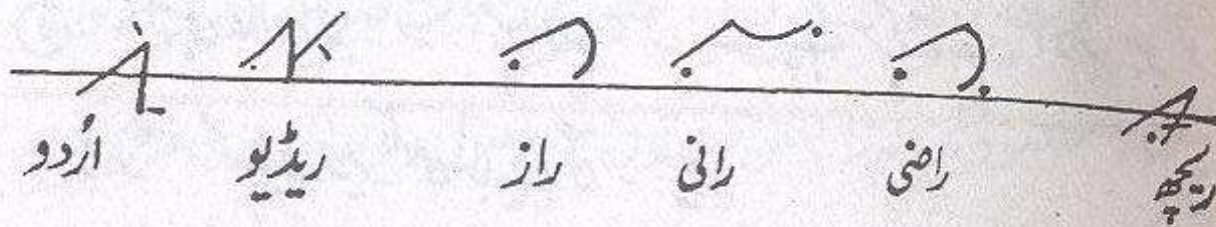 ریچھ راضی رانی راز ریڈیو اُردو